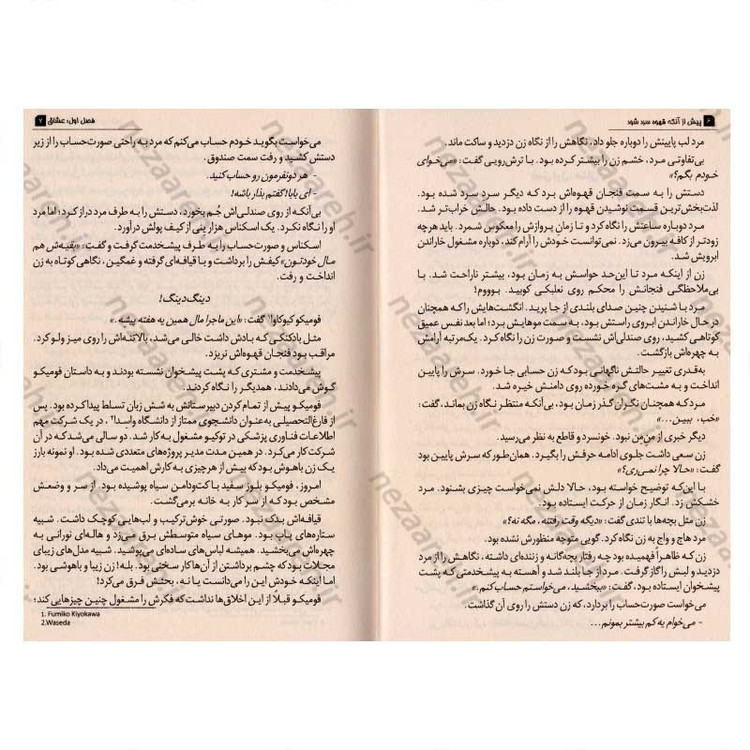 ۶ پیش از آنکه قهوه سرد شود
مرد لب پایینش را دوباره جلو داد، نگاهش را از نگاه زن دزدید و ساکت ماند.
بی‌تفاوتی مرد، خشم زن را بیشتر کرده بود. با ترش‌رویی گفت: «می‌خوای
خودم بگم؟»
دستش را به سمت فنجان قهوه‌اش برد که دیگر سرد سرد شده بود.
لذت‌بخش‌ترین قسمت نوشیدن قهوه را از دست داده بود. حالش خراب‌تر شد.
مرد دوباره ساعتش را نگاه کرد و تا زمان پروازش را معکوس شمرد. باید هرچه
زودتر از کافه بیرون می‌زد. نمی‌توانست خودش را آرام کند، دوباره مشغول خاراندن
ابرویش شد.
زن از اینکه مرد تا این‌حد حواسش به زمان بود، بیشتر ناراحت شد. با
بی‌ملاحظگی فنجانش را محکم روی نعلبکی کوبید. بوووم!
مرد با شنیدن چنین صدای بلندی از جا پرید. انگشت‌هایش را که همچنان
در حال خاراندن ابروی راستش بود، به سمت موهایش برد؛ اما بعد نفس عمیق
کوتاهی کشید، روی صندلی‌اش نشست و صورت زن را نگاه کرد. یک‌مرتبه آرامش
به چهره‌اش بازگشت.
به‌قدری تغییر حالتش ناگهانی بود که زن حسابی جا خورد. سرش را پایین
انداخت و به مشت‌های گره خورده روی دامنش خیره شد.
مرد که همچنان نگران گذر زمان بود، بی‌آنکه منتظر نگاه زن بماند، گفت:
«خب، ببین...»
دیگر خبری از من‌من نبود. خونسرد و قاطع به نظر می‌رسید.
زن سعی داشت جلوی ادامه حرفش را بگیرد. همان‌طور که سرش پایین بود
گفت: «حالا چرا نمی‌ری؟»
با این‌که توضیح خواسته بود، حالا دلش نمی‌خواست چیزی بشنود. مرد
خشکش زد. انگار زمان از حرکت ایستاده بود.
زن مثل بچه‌ها با تندی گفت: «دیگه وقت رفتنه، مگه نه؟»
مرد هاج و واج به زن نگاه کرد. گویی متوجه منظورش نشده بود.
زن که ظاهراً فهمیده بود چه رفتار بچه‌گانه و زننده‌ای داشته، نگاهش را از مرد
دزدید و لبش را گاز گرفت. مرد از جا بلند شد و آهسته به پیشخدمتی که پشت
پیشخوان ایستاده بود، گفت: «ببخشید، می‌خواستم حساب کنم.»
می‌خواست صورت‌حساب را بردارد، که زن دستش را روی آن گذاشت.
- می‌خوام یه کم بیشتر بمونم...
فصل اول: عشاق ۷
می‌خواست بگوید خودم حساب می‌کنم که مرد به راحتی صورت‌حساب را از زیر
دستش کشید و رفت سمت صندوق.
- هر دو نفرمون رو حساب کنید.
- ای بابا! گفتم بذار باشه!
بی‌آنکه از روی صندلی‌اش جُم بخورد، دستش را به طرف مرد دراز کرد؛ اما مرد
او را نگاه نکرد. یک اسکناس هزار ینی از کیف پولش درآورد.
اسکناس و صورت‌حساب را به طرف پیشخدمت گرفت و گفت: «بقیه‌ش هم
مال خودتون» کیفش را برداشت و با قیافه‌ای گرفته و غمگین، نگاهی کوتاه به زن
انداخت و رفت.
دینگ دینگ!
فومیکو کیوکاوا¹ گفت: «این ماجرا مال همین یه هفته پیشه.»
مثل بادکنکی که بادش خالی می‌شد، بالاتنه‌اش را روی میز ولو کرد.
مراقب بود فنجان قهوه‌اش نریزد.
پیشخدمت و مشتری که پشت پیشخوان نشسته بودند و به داستان فومیکو
گوش می‌دادند، همدیگر را نگاه کردند.
فومیکو پیش از تمام کردن دبیرستانش به شش زبان تسلط پیدا کرده بود. پس
از فارغ‌التحصیلی به‌عنوان دانشجوی ممتاز از دانشگاه واسدا²، در یک شرکت مهم
اطلاعات فناوری پزشکی در توکیو مشغول به کار شد. دو سالی می‌شد که در آن
شرکت کار می‌کرد. در همین مدت مدیر پروژه‌های متعددی شده بود. او نمونه بارز
یک زن باهوش بود که بیش از هر چیزی به کارش اهمیت می‌داد.
امروز، فومیکو بلوز سفید با کت‌ودامن سیاه پوشیده بود. از سر و وضعش
مشخص بود که از سر کار به خانه برمی‌گشت.
قیافه‌اش بدک نبود. صورتی خوش‌ترکیب و لب‌هایی کوچک داشت. شبیه
ستاره‌های پاپ بود. موهای سیاه متوسطش برق می‌زد و هاله‌ای نورانی به
چهره‌اش می‌بخشید. همیشه لباس‌های ساده‌ای می‌پوشید. شبیه مدل‌های زیبای
مجلات بود که چشم برداشتن از آن‌ها کار سختی بود. بله! زن زیبا و باهوشی بود.
اما اینکه خودش این را می‌دانست یا نه، بحثش فرق می‌کرد!
فومیکو قبلاً از این اخلاق‌ها نداشت که فکرش را مشغول چنین چیزهایی کند؛
1. Fumiko Kiyokawa
2.Waseda
nezaareh.ir